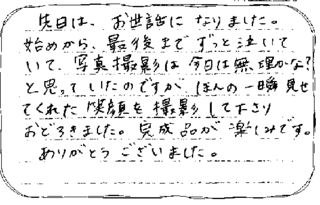 先日は、お世話に なりました。
始めから、最後まで ずっと泣いて
いて、写真撮影は 今日は無理かな？
と思っていたのですが ほんの一瞬見せ
てくれた 笑顔を 撮影して下さり
おどろきました。完成品が 楽しみです。
ありがとう ございました。